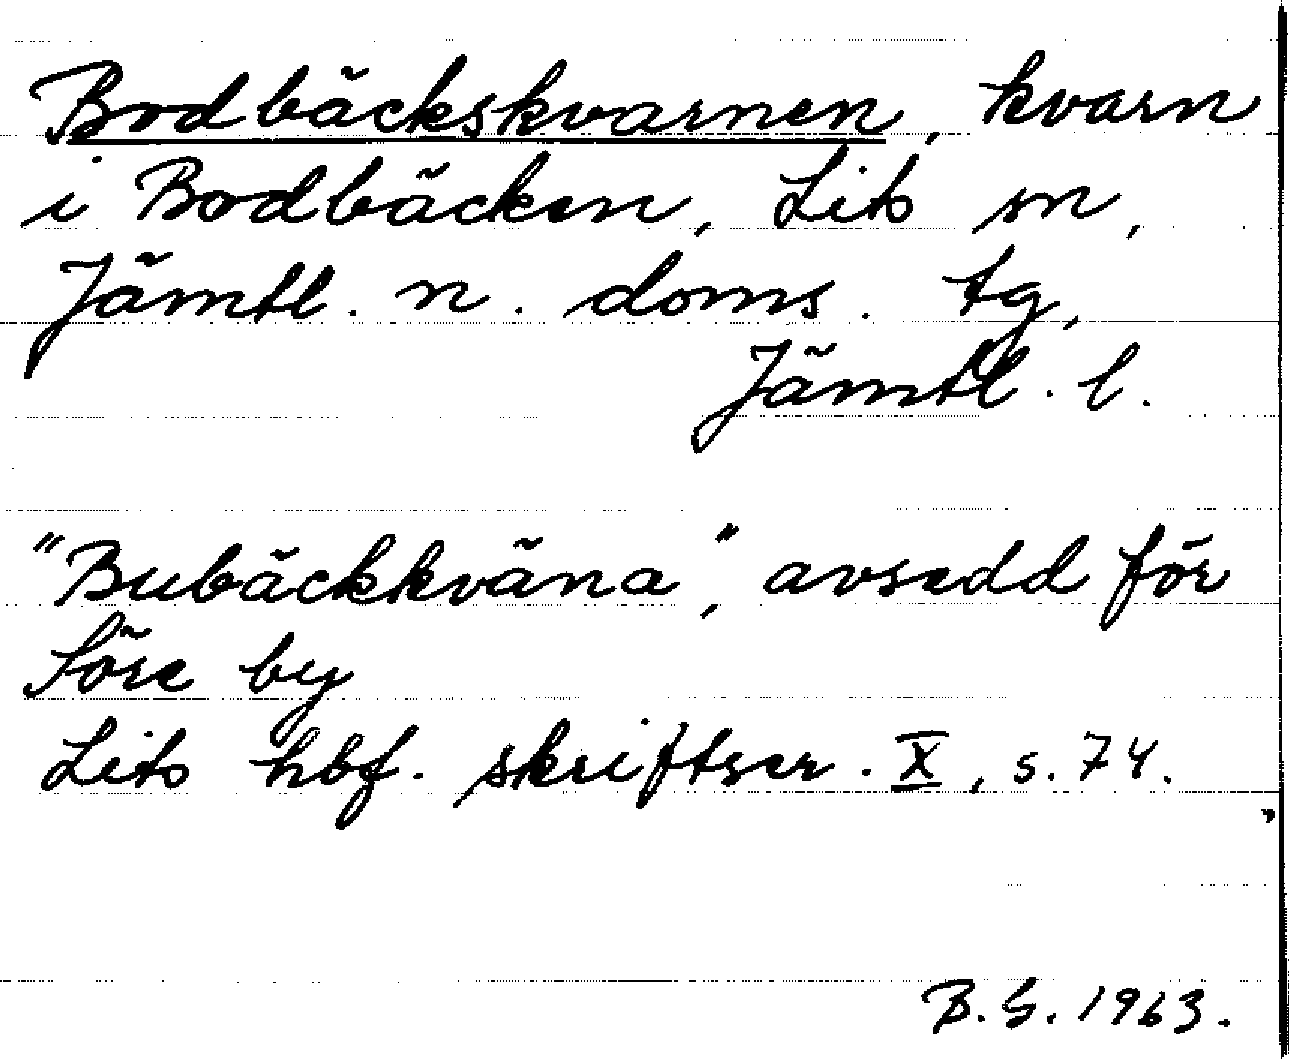 Bodbäckskvarnen, kvarn
i Bodbäcken, Lits sn,
Jämtl. n. doms. tg,
Jämtl. l.
"Bubäckkväna", avsedd för
Söre by
Lits hbf. skriftser. X, s. 74.
B. G. 1963.